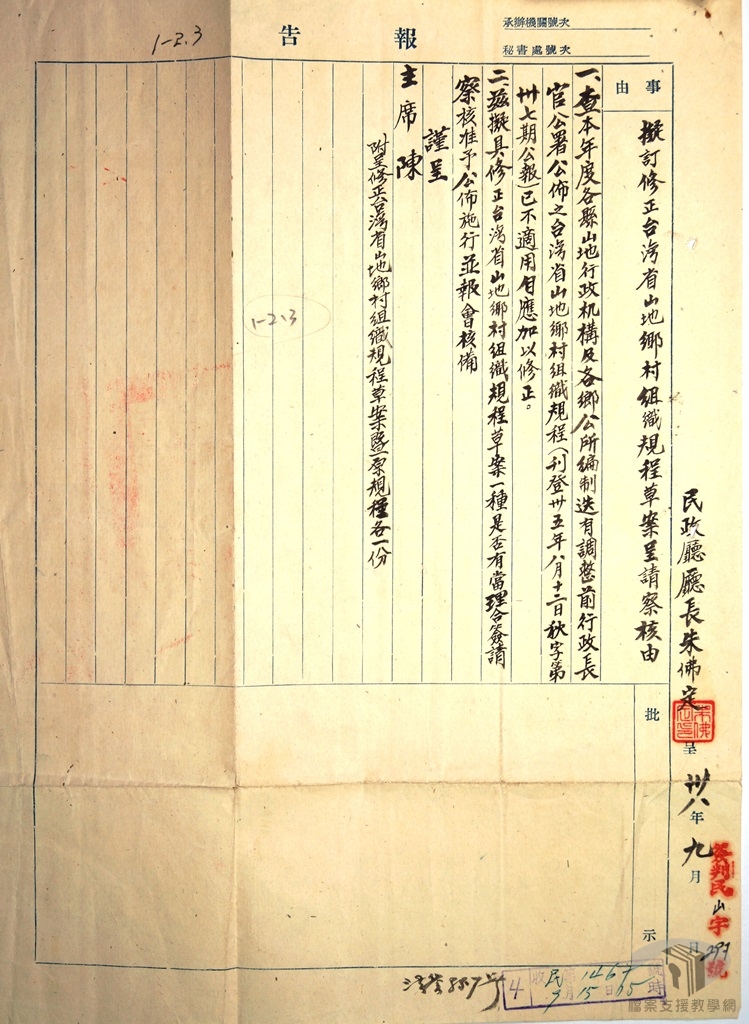 承辦機關號次
秘書處號次
報告
1-2.3
事由
擬訂修正台灣省山地鄉村組織規程草案呈請察核由
民政廳廳長朱佛定
呈
卅八年九月
日
簽判民山字297號
一、查本年度各縣山地行政机構及各鄉公所編制迭有調整前行政長
官公署公佈之台灣省山地鄉村組織規程(刊登卅五年八月十二日秋字第
卅七期公報)已不適用自應加以修正。
二、茲擬具修正台灣省山地鄉村組織規程草案一種是否有當理合簽請
察核准予公佈施行並報會核備
謹呈
主席陳
附呈修正台灣省山地鄉村組織規程草案暨原規程各一份
1-2.3
批示
4
收
民
9月15日15時
檔案支援教學網